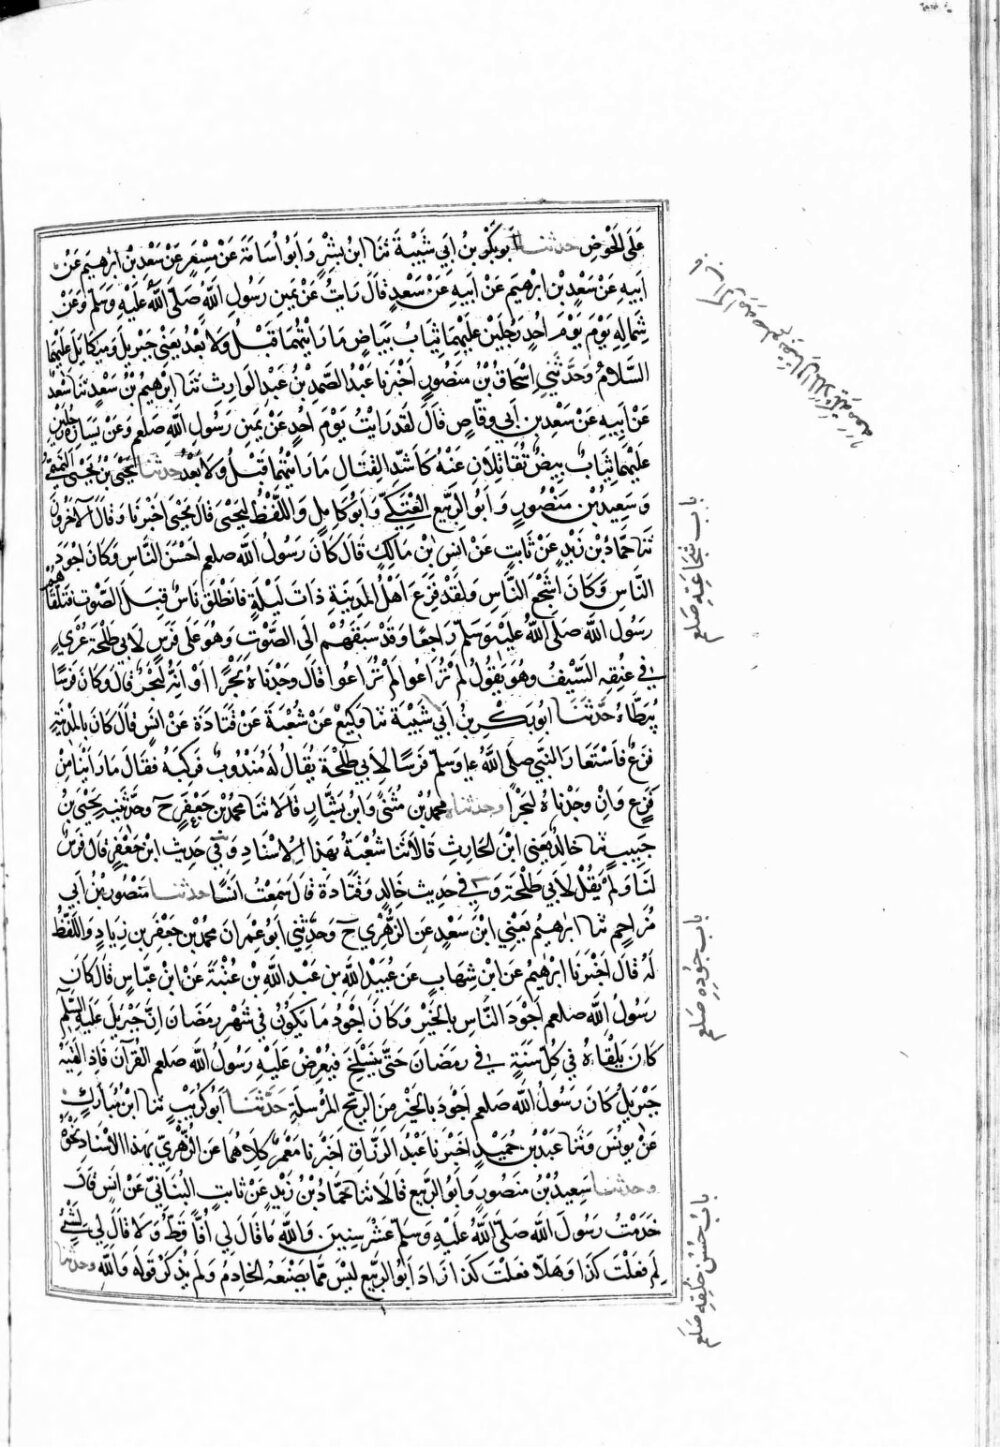 على الحوض حدثنا ابو بكر بن ابي شيبة ثنا ابن بشر وابو اسامة عن مسعر عن سعد بن ابرهيم عن
ابيه عن سعد بن ابرهيم عن ابيه عن سعد قال رايت عن يمين رسول الله صلى الله عليه وسلم وعن
شماله يوم يوم احد رجلين عليهما ثياب بياض ما رايتهما قبل ولا بعد يعني جبريل وميكايل عليهما
السلام وحدثني اسحاق بن منصور اخبرنا عبد الصمد بن عبد الوارث ثنا ابرهيم بن سعد ثنا سعد
عن ابيه عن سعد بن ابي وقاص قال لقد رايت يوم احد عن يمين رسول الله صلعم وعن يساره رجلين
عليهما ثياب بيض تقاتلان عنه كاشد القتال ما رايتهما قبل ولا بعد حدثنا يحيى بن يحيى التميمي
وسعيد بن منصور وابو الربيع العتكي وابو كامل واللفظ ليحيى قال يحيى اخبرنا وقال الآخرون
ثنا حماد بن زيد عن ثابت عن انس بن مالك قال كان رسول الله صلعم احسن الناس وكان اجود
الناس وكان اشجع الناس ولقد فزع اهل المدينة ذات ليلة فانطلق ناس قبل الصوت فتلقاهم
رسول الله صلى الله عليه وسلم راجعا وقد سبقهم الى الصوت وهو على فرس لابي طلحة عري
في عنقه السيف وهو يقول لم تراعوا لم تراعوا قال وجدناه بحرا او انه لبحر قال وكان فرسا
يبطا حدثنا ابو بكر بن ابي شيبة ثنا وكيع عن شعبة عن قتادة عن انس قال كان بالمدينة
فزع فاستعار النبي صلى الله عليه وسلم فرسا لابي طلحة يقال له مندوب فركبه فقال ما راينا من
فزع وان وجدناه لبحرا وحدثناه محمد بن مثنى وابن بشار قالا ثنا محمد بن جعفر ح وحدثنيه يحيى بن
حبيب ثنا خالد يعني ابن الحارث قالا ثنا شعبة بهذا الاسناد وفي حديث ابن جعفر قال فرس
لنا ولم يقل لابي طلحة وفي حديث خالد وقتادة قال سمعت انسا حدثنا منصور بن ابي
مزاحم ثنا ابرهيم يعني ابن سعد عن الزهري ح وحدثني ابو عمران محمد بن جعفر بن زياد واللفظ
له قال اخبرنا ابرهيم عن ابن شهاب عن عبيد الله بن عبد الله بن عتبة عن ابن عباس قال كان
رسول الله صلعم اجود الناس بالخير وكان اجود ما يكون في شهر رمضان ان جبريل عليه السلم
كان يلقاه في كل سنة في رمضان حتى ينسلخ فيعرض عليه رسول الله صلعم القرآن فاذا لقيه
جبريل كان رسول الله صلعم اجود بالخير من الريح المرسلة حدثنا ابو كريب ثنا ابن مبارك
عن يونس وثنا عبد بن حميد اخبرنا عبد الرزاق اخبرنا معمر كلاهما عن الزهري بهذا الاسناد نحوه
وحدثنا سعيد بن منصور وابو الربيع قالا ثنا حماد بن زيد عن ثابت البناني عن انس قال
خدمت رسول الله صلى الله عليه وسلم عشر سنين والله ما قال لي افا قط ولا قال لي لشئ
لم فعلت كذا وهلا فعلت كذا زاد ابو الربيع ليس مما يصنعه الخادم ولم يذكر قوله والله وحدثنا
باب شجاعته صلعم
باب جوده صلعم
باب حسن خلقه صلعم